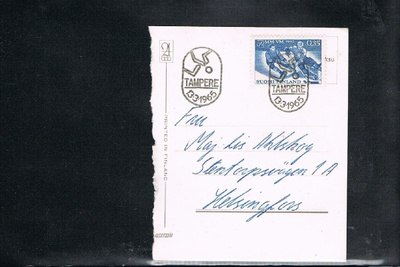 MM VM 1965 0,35
SUOMI FINLAND
TAMPERE
13•3•1965
TAMPERE
13•3•1965
PRINTED IN FINLAND
Fru
Maj Lis Ahlskog
Stentorpsvägen 1 A
Helsingfors